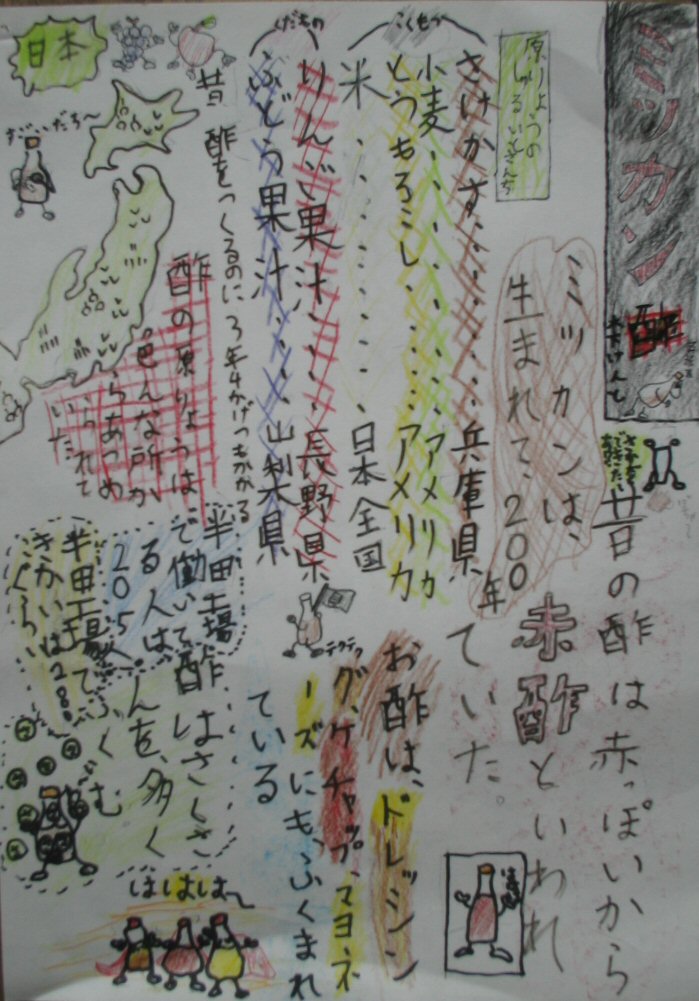 ミツカン
酢
ミツカンは、
生まれて、200年
昔の酢は赤っぽいから
赤酢といわれ
ていた。
原りょうの
こくもつ
さけかす 兵庫県
小麦 アメリカ
とうもろこし アメリカ
米 日本全国
くだもの
りんご果汁 長野県
ぶどう果汁 山梨県
昔酢をつくるのに3年4かげつもかかる
日本
すごいだろ〜
酢の原りょうは
色んな所か
らあつめ
られて
いた
お酢は、ドレッシン
グ、ケチャップ、マヨネ
ーズにも、ふくまれ
ている
テクテク
半田工場
で働いて
る人は
205人
半田工場で
きかいは280
ぐらい
酢はさくさ
んを、多く
ふくむ
はははは〜